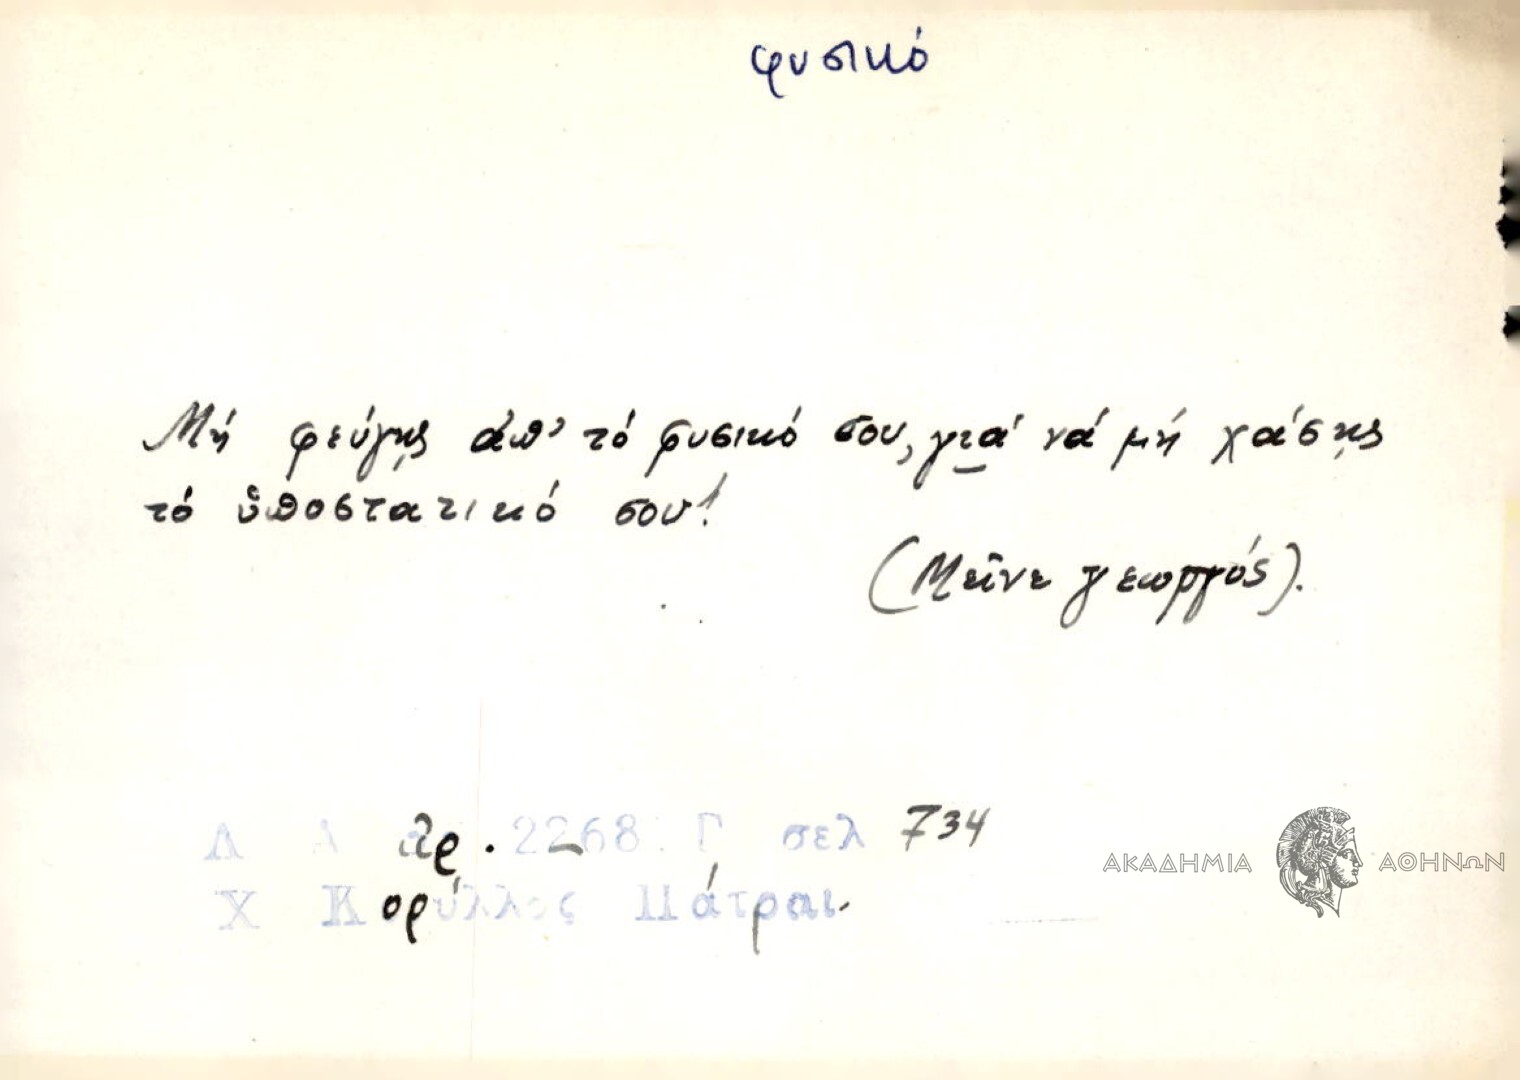 φυσικό
Μή φεύγῃς ἀπ' τό φυσικό σου, γιά νά μή χάσῃς
τό ὑποστατικό σου!
(Μεῖνε γεωργός).
Λ Α Ἀρ. 2268 Γ σελ 734
Χ Κορύλλος Πάτραι.
ΑΚΑΔΗΜΙΑ ΑΘΗΝΩΝ